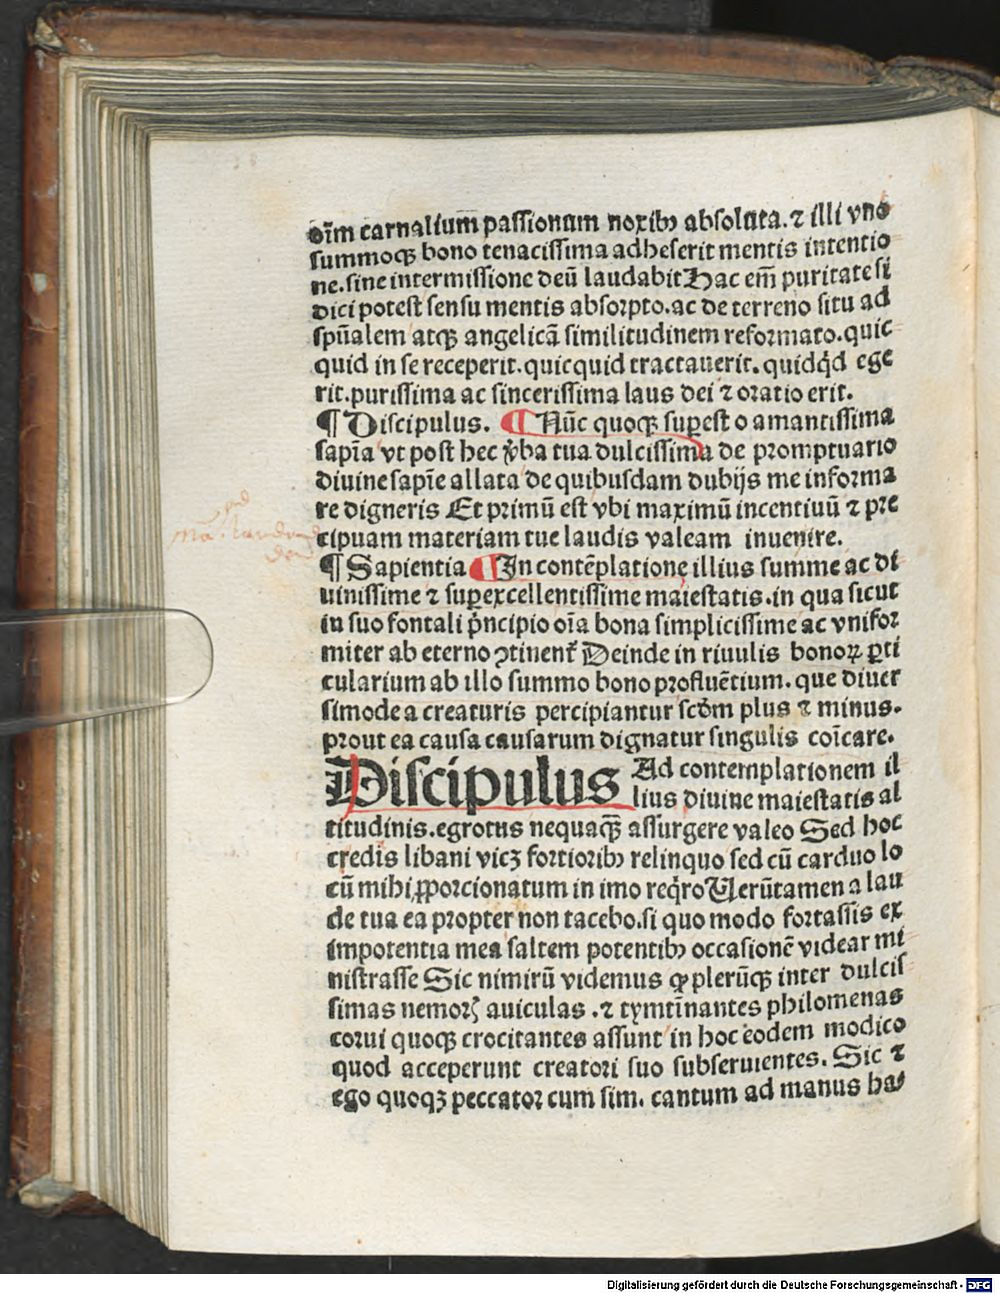 oīm carnalium passionum noxibꝫ absoluta. ⁊ illi vno
summoqꝫ bono tenacissima adheserit mentis intentio
ne. sine intermissione deū laudabit Hac em̄ puritate si
dici potest sensu mentis absorpto. ac de terreno situ ad
spūalem atqꝫ angelicā similitudinem reformato. quic
quid in se receperit. quicquid tractauerit. quidq̇d ege
rit. purissima ac sincerissima laus dei ⁊ oratio erit.
¶ Discipulus. ¶ Nūc quoqꝫ suꝑest o amantissima
sapīa vt post hec v̾ba tua dulcissima de promptuario
diuine sapīe allata de quibusdam dubijs me informa
re digneris Et primū est vbi maximū incentiuū ⁊ pre
cipuam materiam tue laudis valeam inuenire.
¶ Sapientia ¶ In contēplatione illius summe ac di
uinissime ⁊ suꝑexcellentissime maiestatis. in qua sicut
in suo fontali pͥncipio oīa bona simplicissime ac vnifor
miter ab eterno ꝯtinent᷑ Deinde in riuulis bonoꝝ ꝑti
cularium ab illo summo bono profluētium. que diuer
simode a creaturis percipiantur scd̄m plus ⁊ minus.
prout ea causa causarum dignatur singulis coīcare.
Discipulus Ad contemplationem il
lius diuine maiestatis al
titudinis. egrotus nequaqꝫ̄ assurgere valeo Sed hoc
credis libani vicꝫ fortioribꝫ relinquo sed cū carduo lo
cū mihi ꝓporcionatum in imo reqͥro Uerūtamen a lau
de tua ea propter non tacebo. si quo modo fortassis ex
impotentia mea saltem potentibꝫ occasionē videar mi
nistrasse Sic nimirū videmus ꝙ plerūqꝫ inter dulcis
simas nemorꝭ auiculas. ⁊ tymtīnantes philomenas
corui quoqꝫ crocitantes assunt in hoc eodem modico
quod acceperunt creatori suo subseruientes. Sic ⁊
ego quoqꝫ peccator cum sim. cantum ad manus ha
Digitalisierung gefördert durch die Deutsche Forschungsgemeinschaft - DFG